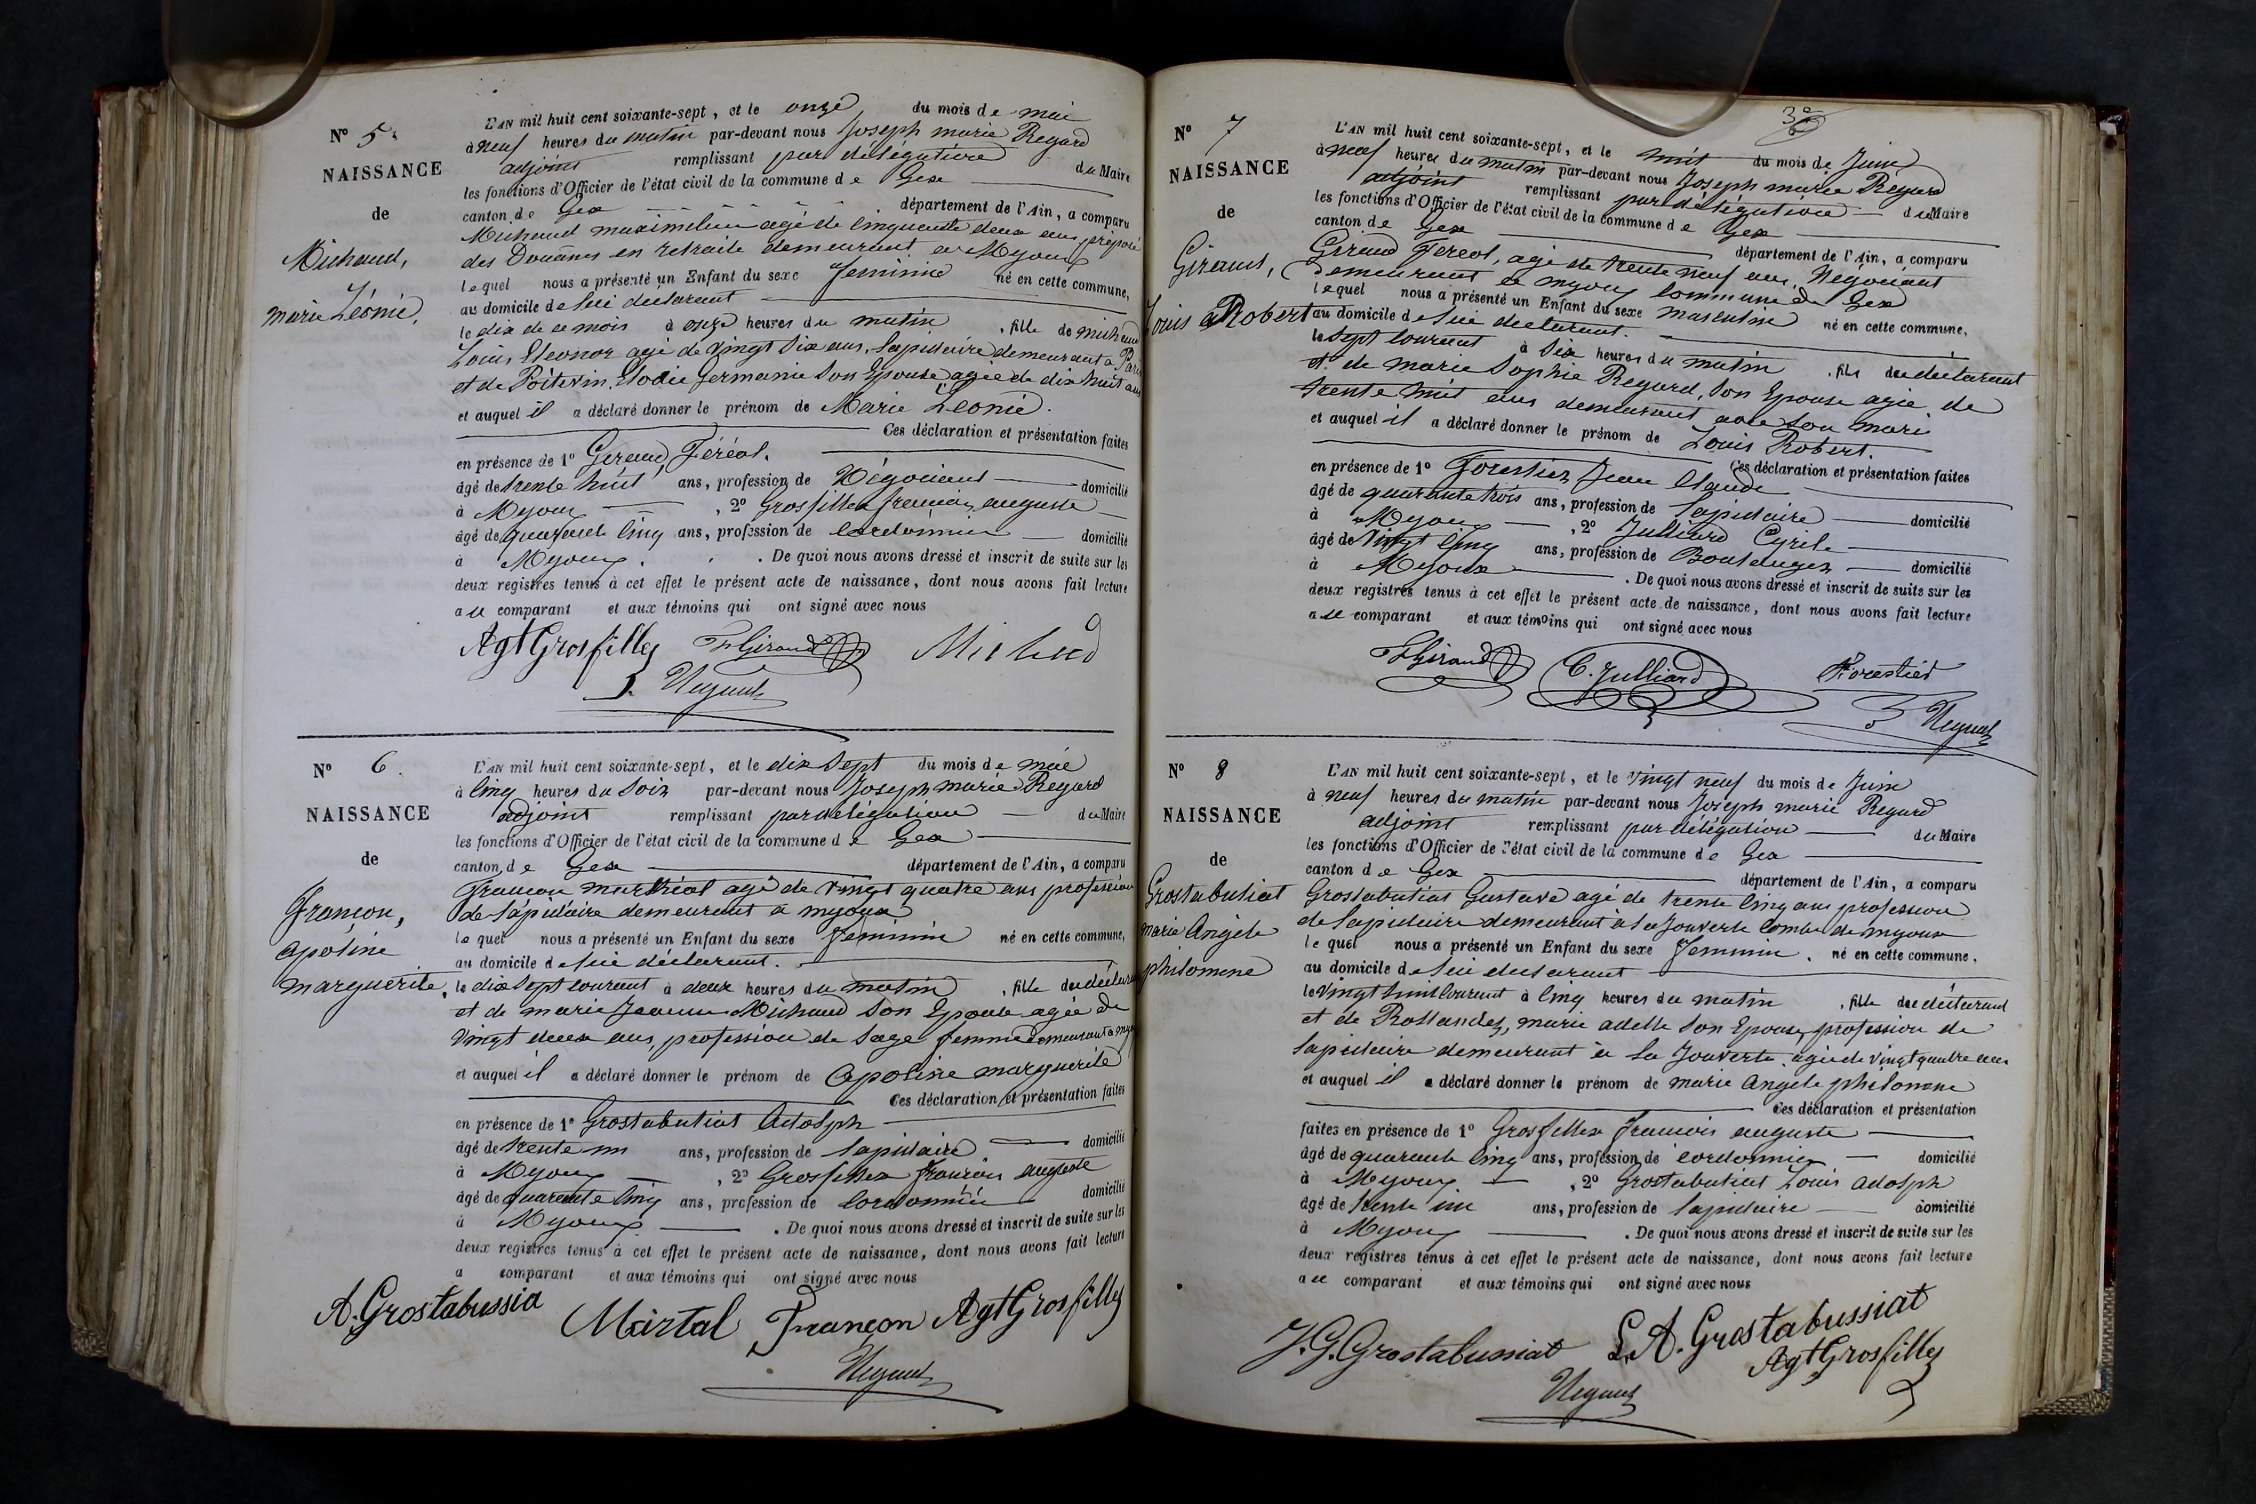 N° 5.
NAISSANCE
de
Michaud,
marie Léonie.
L'AN mil huit cent soixante-sept, et le onze du mois de mai
à neuf heures du matin par-devant nous Joseph marie Regard
adjoint remplissant par délégation du Maire
les fonctions d'Officier de l'état civil de la commune de Gex
canton de Gex département de l'Ain, a comparu
Michaud maximilien agé de cinquante deux ans, préposé
des Douanes en retraite demeurant a Myoux
lequel nous a présenté un Enfant du sexe feminine né en cette commune,
au domicile de lui declarant
le dix de ce mois à onze heures du matin, fille de michaud
Louis, Eleonor agé de vingt six ans, Lapidaire demeurant a Paris
et de Poitevin, Elodie Germanie son Epouse agée de dix huit ans
et auquel il a déclaré donner le prénom de Marie Leonie.
Ces déclaration et présentation faites
en présence de 1° Geraud Féréol.
âgé de trente huit ans, profession de Négociant domicilié
à Myoux, 2° Grosfillex francois auguste
âgé de quarante cinq ans, profession de cordonnier domicilié
à Myoux. De quoi nous avons dressé et inscrit de suite sur les
deux registres tenus à cet effet le présent acte de naissance, dont nous avons fait lecture
au comparant et aux témoins qui ont signé avec nous
Agt Grosfilley F Giraud Michaud
N° 6.
NAISSANCE
de
françon,
apoline
marguerite.
L'AN mil huit cent soixante-sept, et le dix sept du mois de mai
à cinq heures du soir par-devant nous Joseph marie Regard
adjoint remplissant par délégation du Maire
les fonctions d'Officier de l'état civil de la commune de Gex
canton de Gex département de l'Ain, a comparu
françon martial agé de vingt quatre ans profession
de lapidaire demeurant a myoux
lequel nous a présenté un Enfant du sexe feminin né en cette commune,
au domicile de lui déclarant.
le dix sept courant à deux heures du matin, fille du déclarant
et de marie Jeanne Michaud son Epouse agée de
vingt deux ans, profession de Sage femme demeurant a myoux
et auquel il a déclaré donner le prénom de apoline marguerite
Ces déclaration et présentation faites
en présence de 1° Grostabutiat Adolph
âgé de trente un ans, profession de lapidaire domicilié
à Myoux, 2° Grosfillex francois auguste
âgé de quarante cinq ans, profession de cordonnier domicilié
à Myoux. De quoi nous avons dressé et inscrit de suite sur les
deux registres tenus à cet effet le présent acte de naissance, dont nous avons fait lecture
a comparant et aux témoins qui ont signé avec nous
A. Grostabussia Martal Françon Agt Grosfilley
N° 7
NAISSANCE
de
Giraud,
Louis Robert
L'AN mil huit cent soixante-sept, et le huit du mois de Juin
à neuf heures du matin par-devant nous Joseph marie Régard
adjoint remplissant par délégation du Maire
les fonctions d'Officier de l'état civil de la commune de Gex
canton de Gex département de l'Ain, a comparu
Giraud Fereol, agé de trente neuf ans, Négociant
demeurant a myoux commune de Gex
lequel nous a présenté un Enfant du sexe masculine né en cette commune,
au domicile de lui declarant.
le sept courant à six heures du matin, fils du déclarant
et de marie Sophie Regard, son Epouse agée de
trente huit ans demeurant avec son mari
et auquel il a déclaré donner le prénom de Louis Robert.
Ces déclaration et présentation faites
en présence de 1° Forestier Jean Claude
âgé de quarante trois ans, profession de lapidaire domicilié
à Myoux, 2° Julliard Cyrile
âgé de vingt cinq ans, profession de Boulanger domicilié
à Myoux. De quoi nous avons dressé et inscrit de suite sur les
deux registres tenus à cet effet le présent acte de naissance, dont nous avons fait lecture
au comparant et aux témoins qui ont signé avec nous
F Giraud C. Julliard Forestier
N° 8
NAISSANCE
de
Grostabutiat
marie Angèle
philomene
L'AN mil huit cent soixante-sept, et le vingt neuf du mois de Juin
à neuf heures du matin par-devant nous Joseph marie Regard
adjoint remplissant par délégation du Maire
les fonctions d'Officier de l'état civil de la commune de Gex
canton de Gex département de l'Ain, a comparu
Grostabutiat Gustave agé de trente cinq ans profession
de lapidaire demeurant à la Jouverte Combe de myoux
lequel nous a présenté un Enfant du sexe feminin, né en cette commune,
au domicile de lui declarant
le vingt huit courant à cinq heures du matin, fille du déclarant
et de Rollandez, marie adelle son Epouse, profession de
lapidaire demeurant à la Jouverte agée de vingt quatre ans
et auquel il a déclaré donner le prénom de marie angele philomene
Ces déclaration et présentation
faites en présence de 1° Grosfillex francois auguste
âgé de quarante cinq ans, profession de cordonnier domicilié
à Myoux, 2° Grostabutiat Louis adolph
âgé de trente un ans, profession de lapidaire domicilié
à Myoux. De quoi nous avons dressé et inscrit de suite sur les
deux registres tenus à cet effet le présent acte de naissance, dont nous avons fait lecture
au comparant et aux témoins qui ont signé avec nous
J. G. Grostabussiat L. A. Grostabussiat
Agt Grosfilley